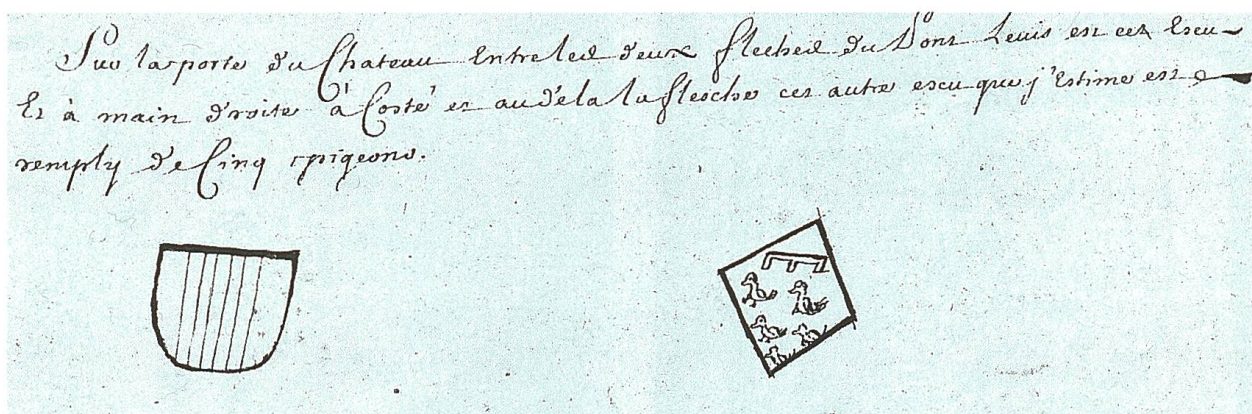 Sur la porte du Chateau Entre les deux flesches du Pont Levis est cet Escu
Et à main droite à Costé et au dela la flesche cet autre escu que j'Estime est
remply de Cinq pigeons.